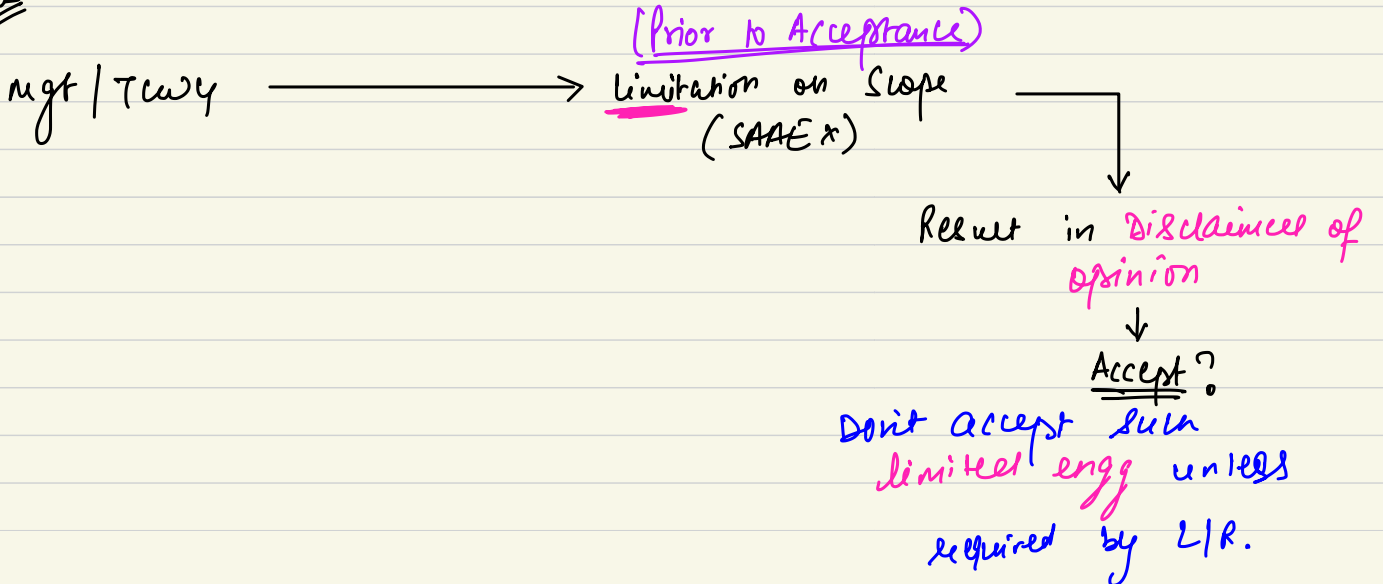 (Prior to Acceptance)
Mgt / TCWG → Limitation on Scope
(SAAE x)
Result in Disclaimer of
opinion
↓
Accept?
Don't accept such
limited engg unless
required by L/R.